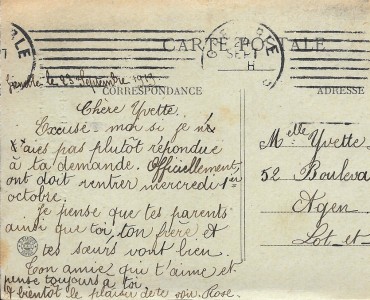 CARTE POSTALE
le 23 Septembre 1919.
CORRESPONDANCE
ADRESSE
Chère Yvette.
Excuse moi si je n'
t'aies pas plutôt répondue
à ta demande. Officiellement,
ont doit rentrer mercredi 1er
octobre.
Je pense que tes parents
ainsi que toi, ton frère et
tes sœurs vont bien.
Ton amiez qui t'aime et
pense toujours à toi
à bientôt le plaisir de te voir. Rose.
Melle Yvette
52 Bouleva
Agen
Lot-et-